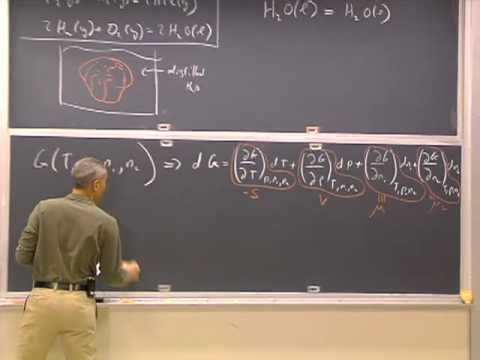 2 H₂(g) + O₂(g) = 2 H₂O(l)
H₂O(l) = H₂O(s)
distilled
H₂O
G(T, p, n₁, n₂) ⇒ dG = (∂G/∂T)p,n₁,n₂ dT + (∂G/∂p)T,n₁,n₂ dp + (∂G/∂n₁)T,p,n₂ dn₁ + (∂G/∂n₂)T,p,n₁ dn₂
-S V μ₁ μ₂